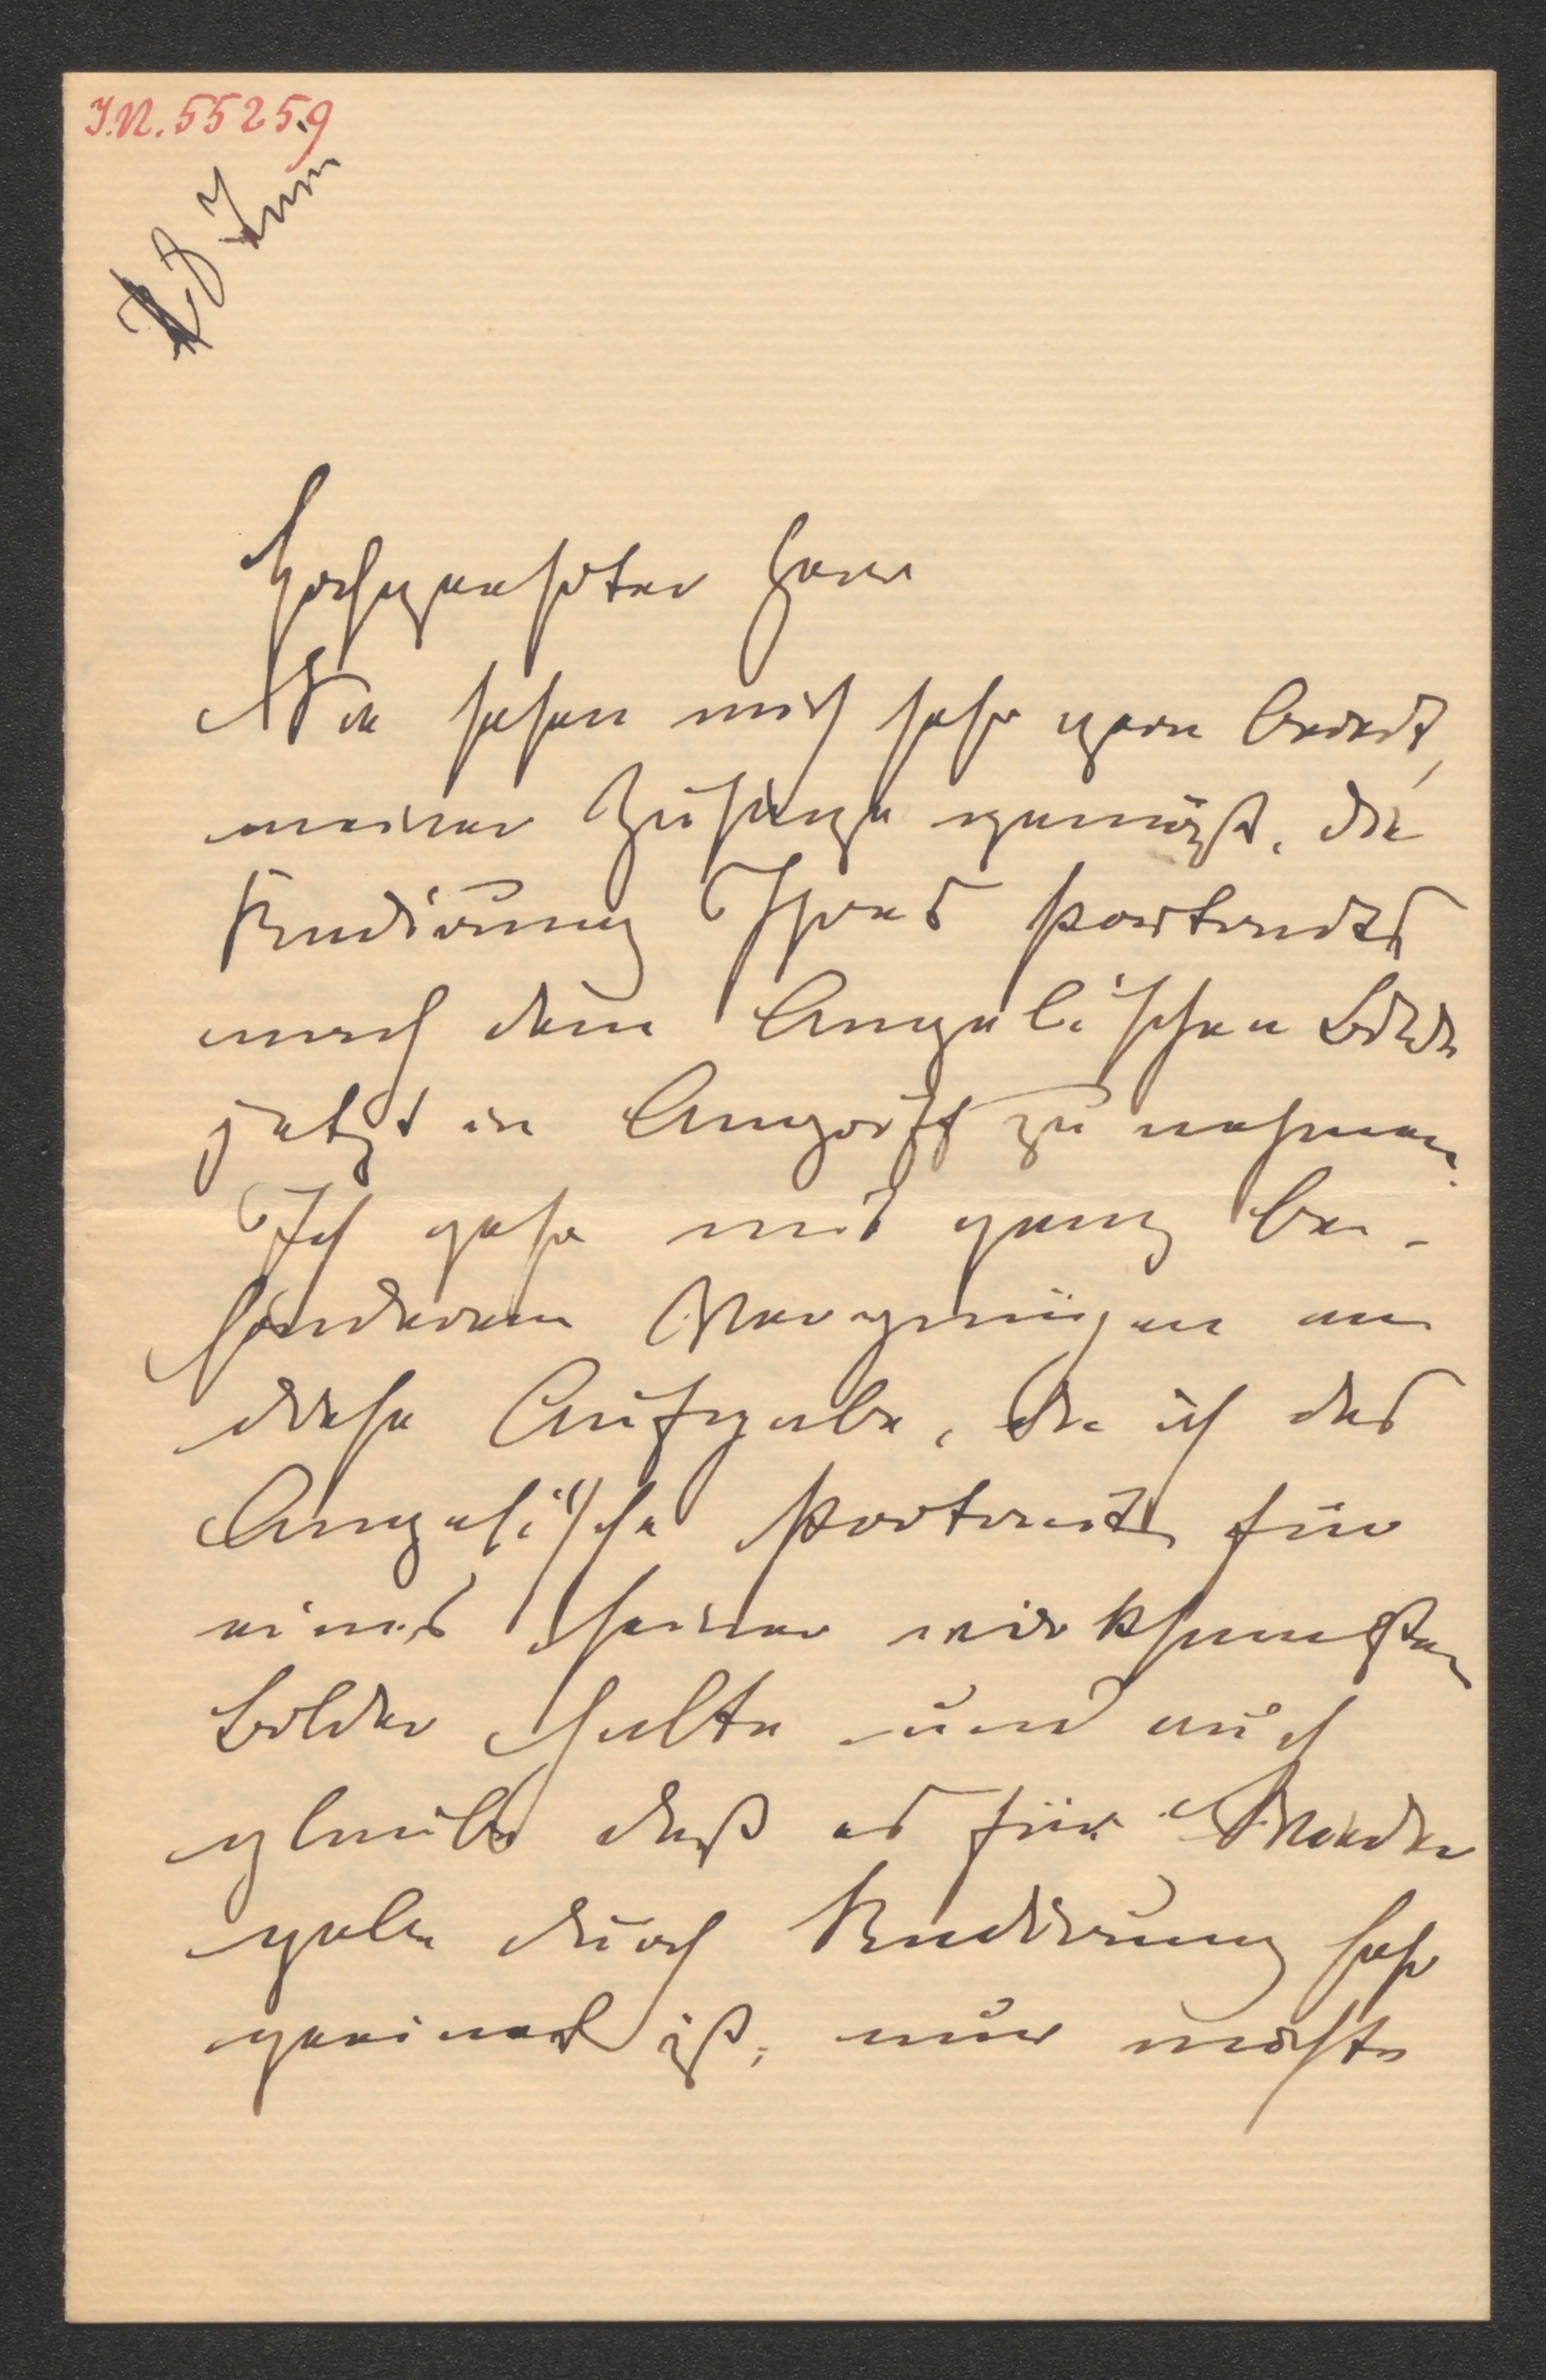 I.N. 55259
Hochgeehrter Herr
Sie sehen mich sehr gern bereit,
meiner Zusage gemäß, die
Radirung Ihres Portraits
nach dem Angelischen Bilde
jetzt in Angriff zu nehmen.
Ich gehe mit ganz be-
sonderem Vergnügen an
diese Aufgabe, da ich das
Angelische Portrait für
eines seiner wirksamsten
Bilder halte und auch
glaube daß es für Wieder
gabe durch Radirung sehr
geeignet ist, nur möchte